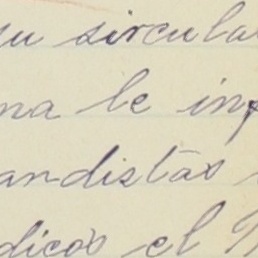 su sircula
na le inf
andistas
dicos el